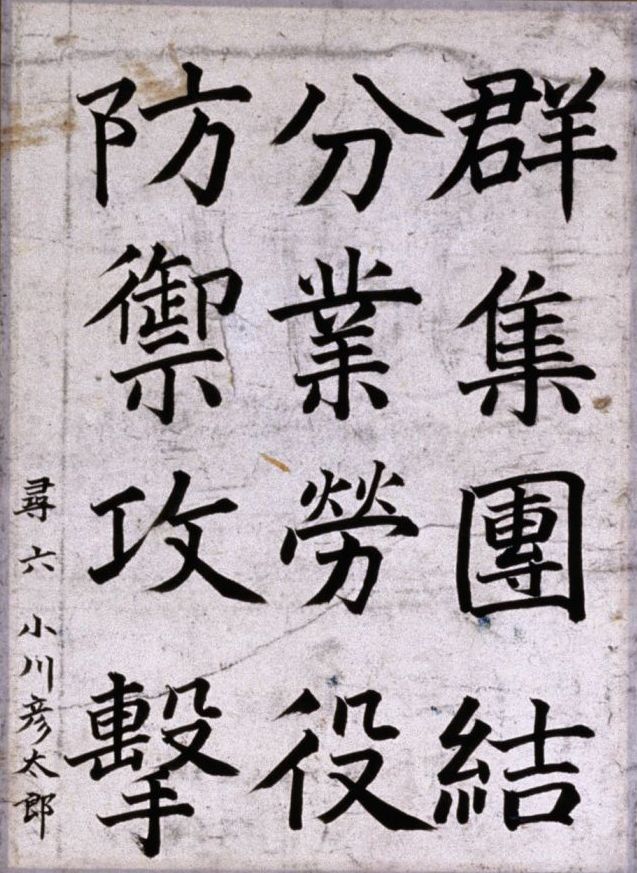 群集團結
分業勞役
防禦攻擊
尋六 小川彦太郎